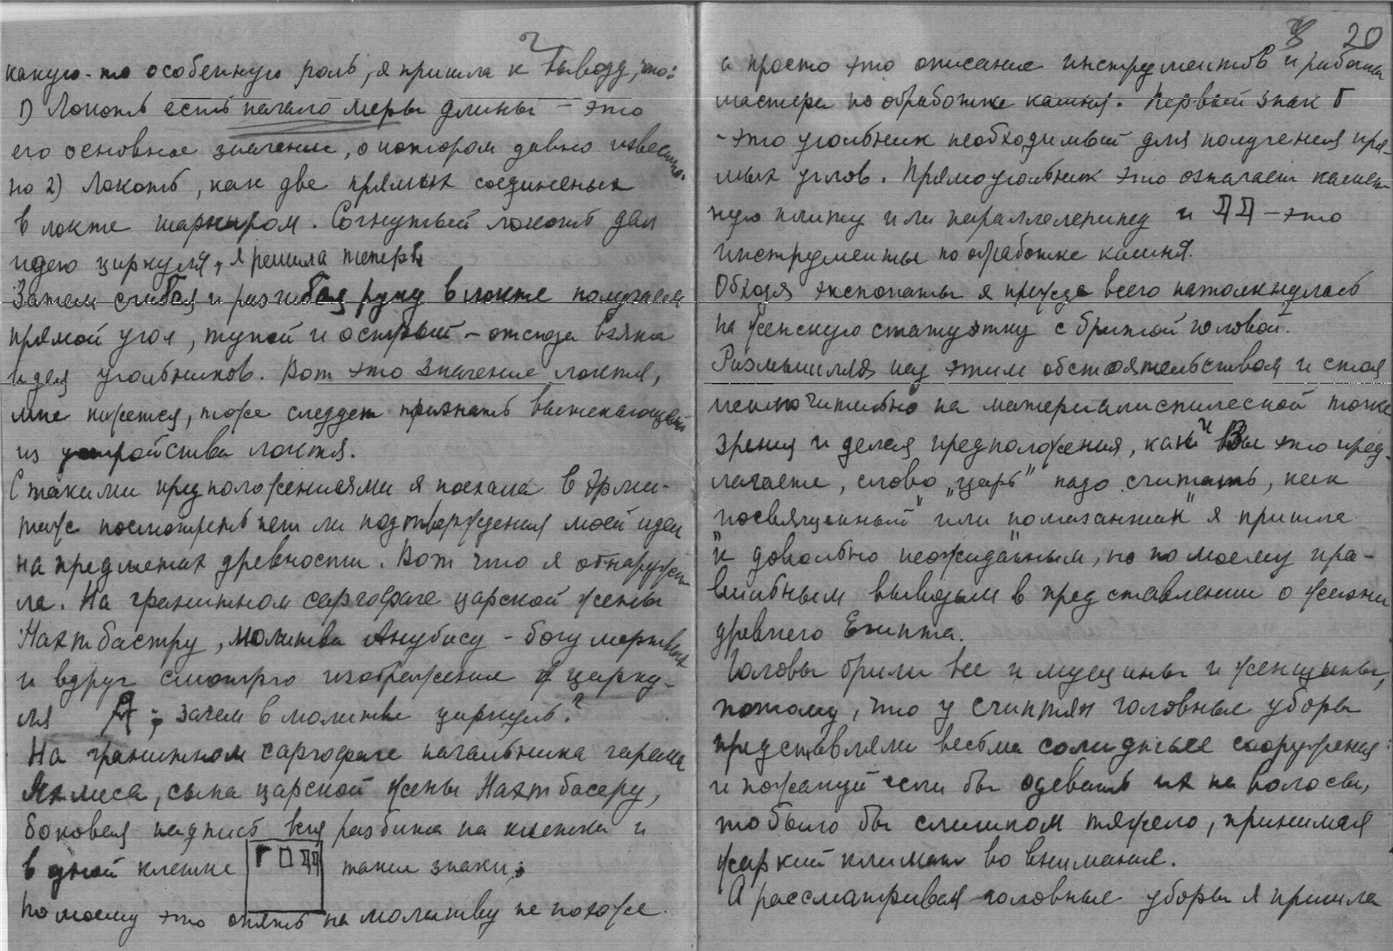 2
какую-то особенную роль, я пришла к выводу, что:
1) Локоть есть начало меры длины – это
его основное значение, о котором давно известно
но 2) Локоть, как две прямых соединеных
в локте шарниром. Согнутый локоть дал
идею циркуля, я решила теперь.
Затем сгибая и разгибая руку в локте получаем
прямой угол, тупой и острый – отсюда взята
идея угольников. Вот это значение локтя,
мне кажется, тоже следует признать вытекающей
из устройства локтя.
С такими предположениями я поехала в Эрми-
таж посмотреть нет ли подтверждения моей идеи
на предметах древности. Вот что я обнаружи
ла. На гранитном саргофаге царской жены
Нахтбастру, молитва Анубису – богу мертвых
и вдруг смотрю изображение цирку-
ля ; зачем в молитве циркуль?
На гранитном саргофаге начальника гарема
Яхмеса, сына царской жены Нахтбасеру,
боковая надпись вся разбита на клетки и
в одной клетке Г такие знаки;
по моему это опять на молитву не похоже.
20
а просто это описание инструментов и работы
мастера по обработке камня. Первый знак Г
– это угольник необходимый для получения пря-
мых углов. Прямоугольник это означает камен-
ную плиту или параллелепипед и – это
инструменты по обработке камня.
Обходя экспонаты я прежде всего натолкнулась
на женскую статуэтку с бритой головой.
Размышляя над этим обстоятельством и стоя
исключительно на материалистической точке
зрения и делая предположения, как и Вы это пред-
лагаете, слово „царь" надо считать, как
"посвященный" или "помазанник" я пришла
к довольно неожиданным, но по моему пра-
вильным выводам в представлении о жизни
древнего Египта.
Головы брили все и мущины и женщины,
потому, что у египтян головные уборы
представляли весьма солидные сооружения
и пожалуй если бы одевать их на волосы,
то было бы слишком тяжело, принимая
жаркий климат во внимание.
А рассматривая головные уборы я пришла